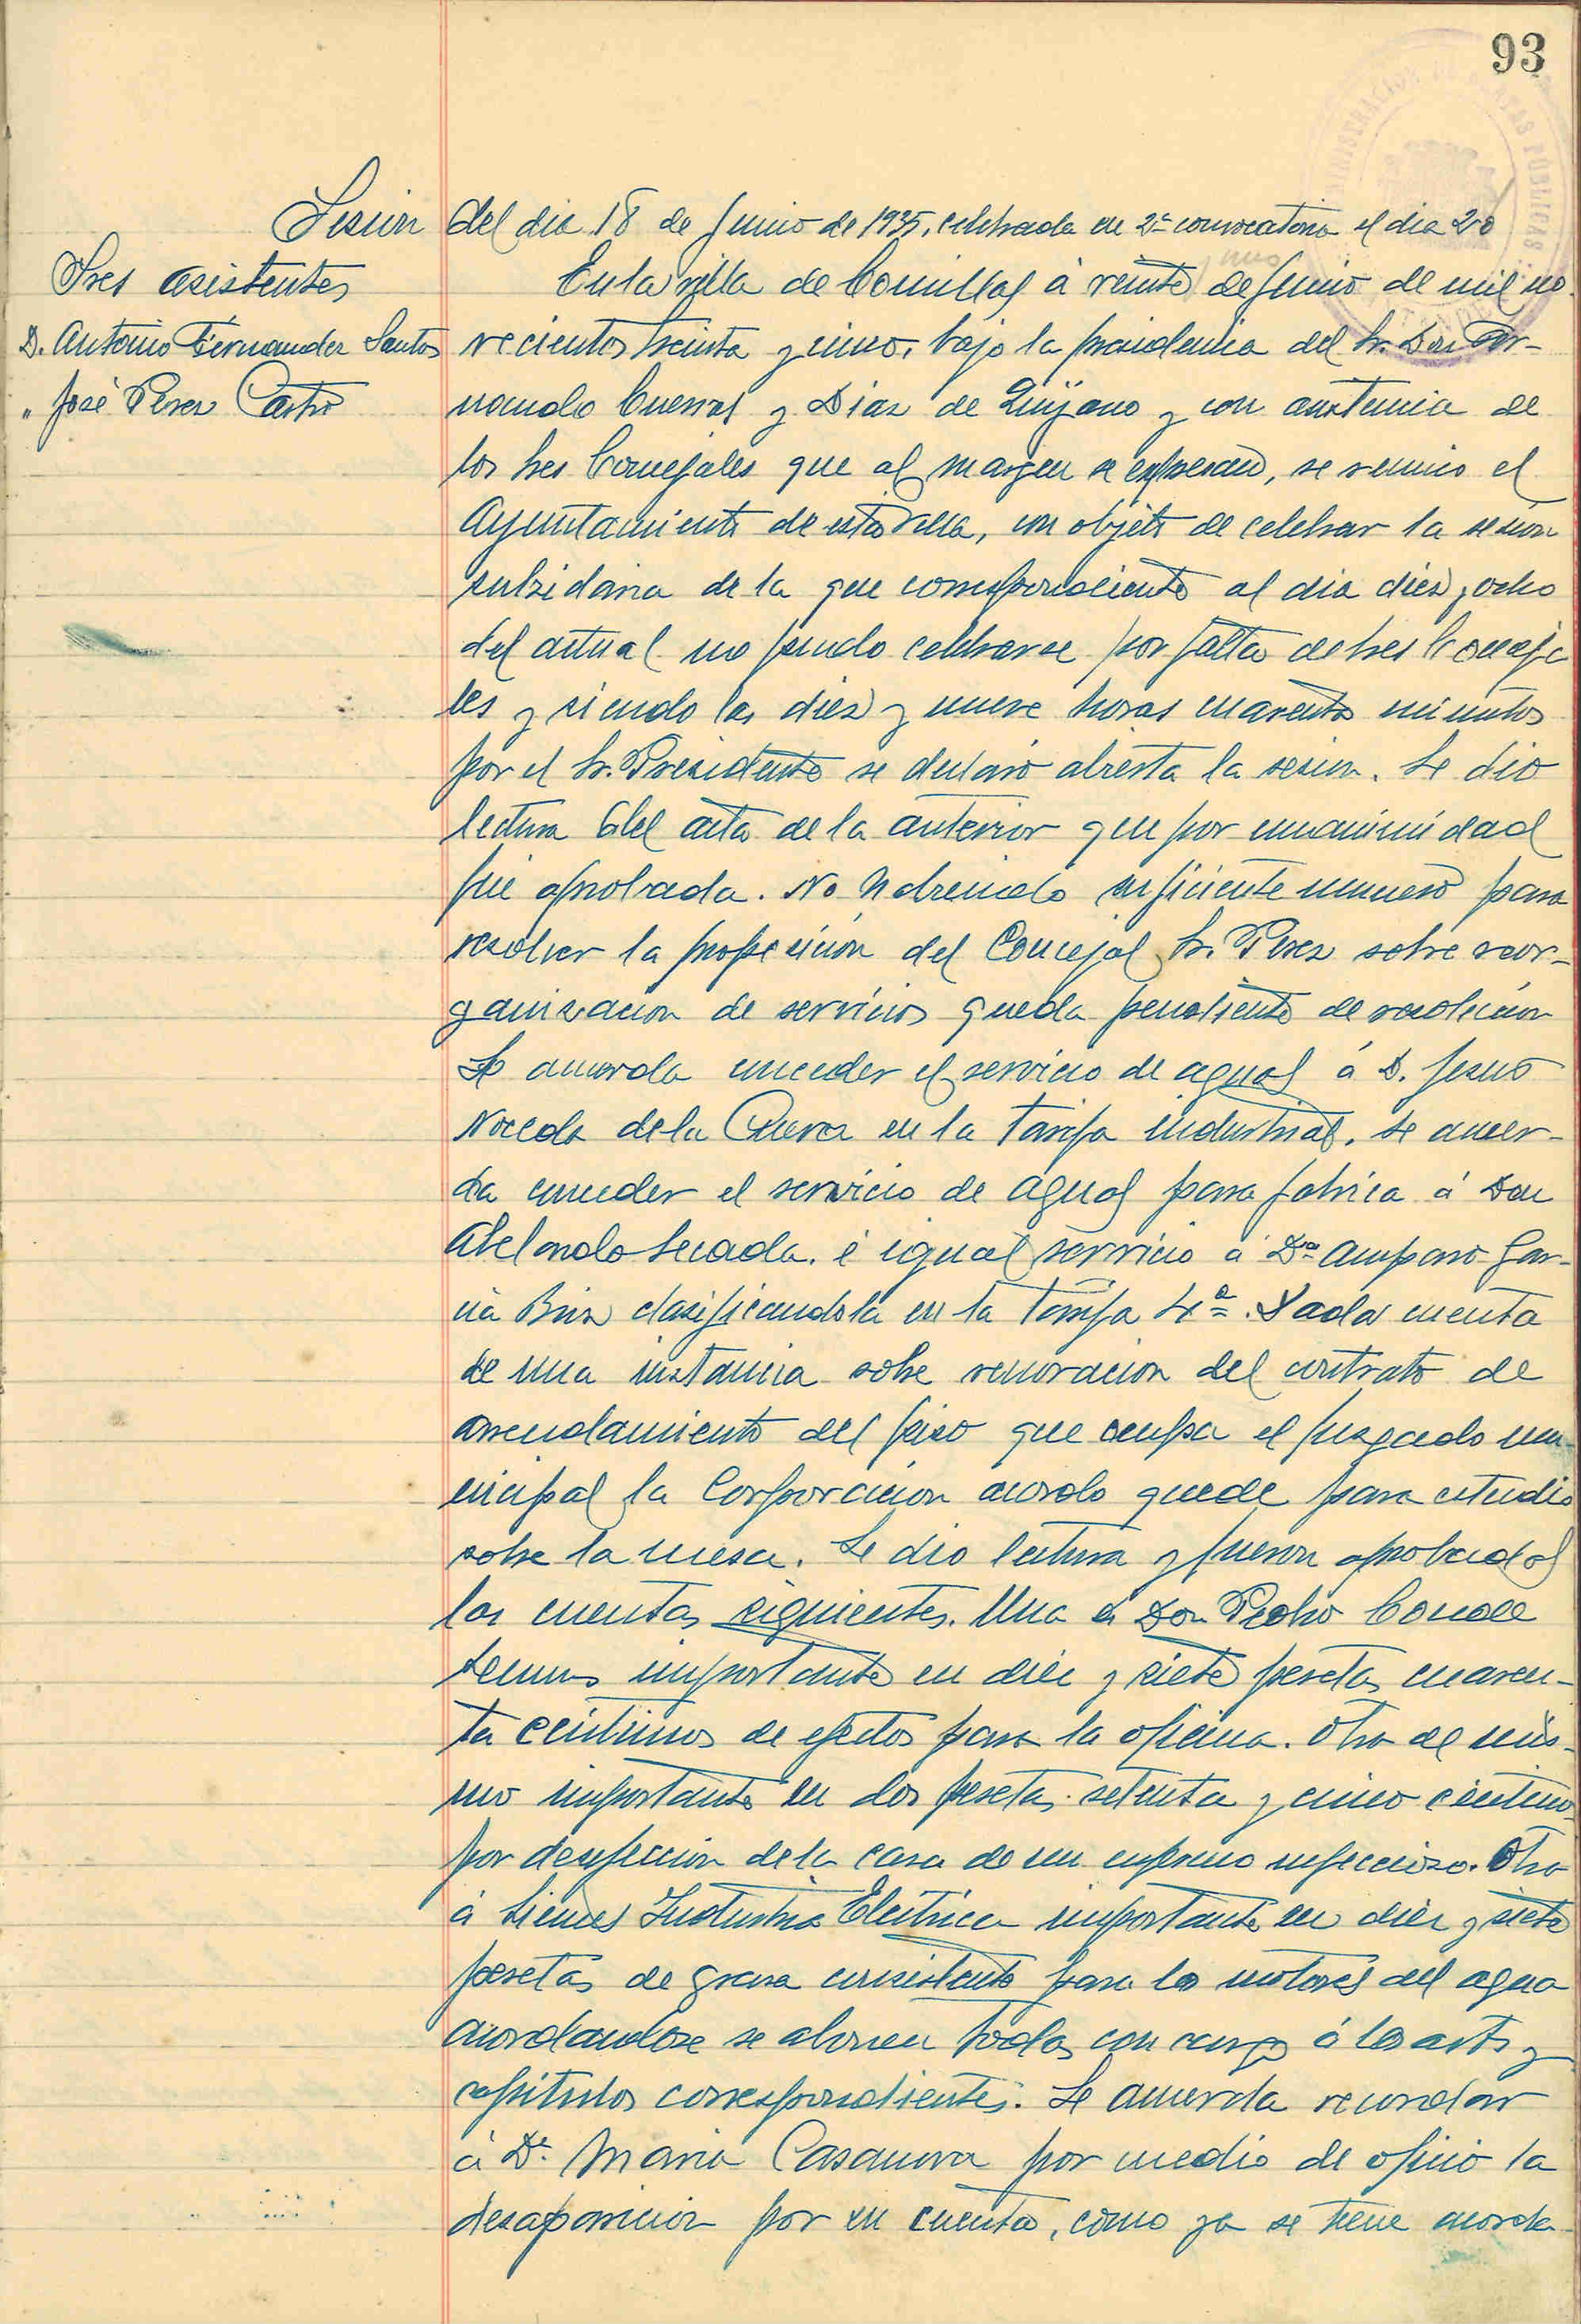 93
Sesion del dia 18 de Junio de 1935, celebrada en 2ª convocatoria el dia 20
Sres asistentes
D. Antonio Fernandez Santos
" José Perez Castro
En la villa de Comillas á veinte de Junio de mil no-
vecientos treinta y cinco, bajo la presidencia del Sr. Don Fer-
nando Cuevas y Diaz de Quijano y con asistencia de
los Sres Concejales que al margen se expresan, se reunio el
Ayuntamiento de esta villa, con objeto de celebrar la sesion
subsidaria de la que correspondiente al dia diez y ocho
del actual no pudo celebrarse por falta de Sres Conceja
les y siendo las diez y nueve horas cuarenta minutos
por el Sr. Presidente se declaró abierta la sesion. Se dio
lectura del acta de la anterior que por unanimidad
fue aprobada. No habiendo suficiente numero para
resolver la proposición del Concejal Sr. Perez sobre reor-
ganizacion de servicios queda pendiente de resolucion
Se acuerda conceder el servicio de aguas á D. Jesus
Noceda de la Cueva en la tarifa industrial. Se acuer-
da conceder el servicio de aguas para fabrica á Don
Abelardo Secada. é igual servicio á Dª Amparo Gar-
cia Briz clasificandola en la tarifa 4ª. Dada cuenta
de una instancia sobre renovacion del contrato de
arrendamiento del piso que ocupa el Juzgado mu-
nicipal la Corporacion acordo quede para estudio
sobre la mesa. Se dio lectura y fueron aprobadas
las cuentas siguientes. Una á Don Pedro Conde
importante en diez y siete pesetas cuaren-
ta centimos de efectos para la oficina. Otra al mis-
mo importante en dos pesetas setenta y cinco centimos
por desinfeccion de la casa de un enfermo infeccioso. Otra
á Siemes Industria Eléctrica importante en diez y siete
pesetas de grasa consistente para los motores del agua
acordandose se abonen todas con cargo á los arts y
capitulos correspondientes. Se acuerda recordar
á Dª Maria Casanova por medio de oficio la
desaparicion por su cuenta, como ya se tiene acorda-